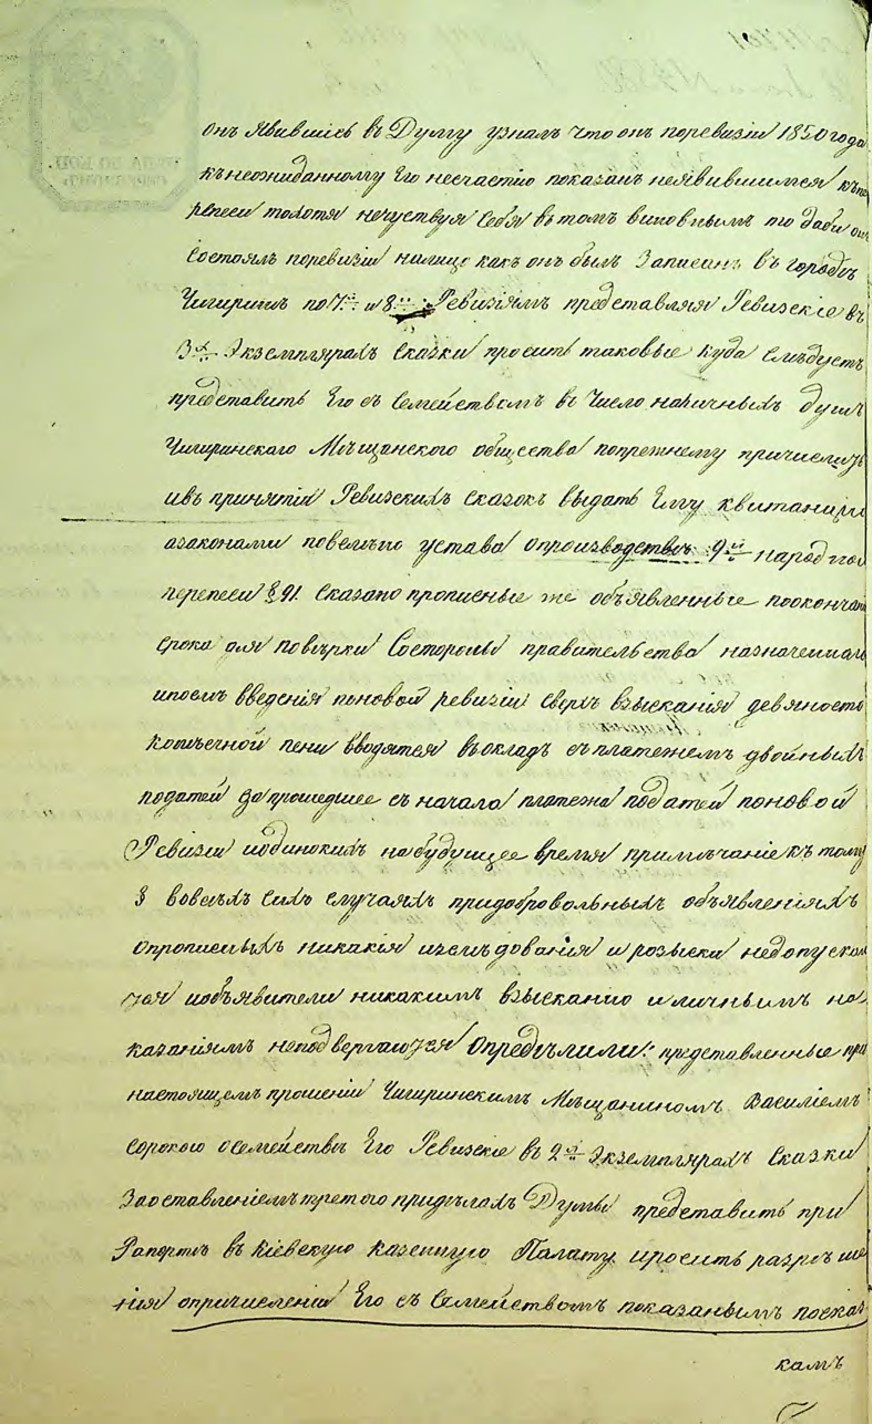 онъ явившись въ Думу узналъ что онъ поревизіи 1850 года
къ неожиданному Его несчастію показанъ неявившимся къ пе
реписи толотя нечуствуя Себя въ томъ виновнымъ то дабы он
Состоялъ поревизіи налицо какъ онъ былъ Записанъ въ городѣ
Чигиринѣ по 7й и 8й Ревизіямъ представляя Ревизскіе въ
3х Экземплярахъ Сказки проситъ таковые куда Слѣдуетъ
представить Его съ Семействомъ въ Число наличныхъ душъ
Чигиринскаго Мѣщанского общества попрежнему причислить
ивъ принятіи Ревизскихъ Сказокъ выдать Ему квитанціи
азаконами повелѣно устава опроизводствѣ 9й народной
переписи § 91. Сказано прописные же объявленные поокончаніи
срока для повѣрки Состороны правительства назначеннаго
ипоемъ введенія поновой ревизіи сверхъ взысканія девяносто
копѣечной пени вводятся въокладъ съплатежемъ двойныхъ
податей запрошедшее съ начала платежа податей поновой
Ревизіи иодинокихъ набудущее время примѣчаніе къ тому
§ вовсѣхъ Сихъ случаяхъ придобровольныхъ объявленіяхъ
опрописныхъ никакія изслѣдованія и розыски недопуска
тся иобъявители никакимъ взысканію иличнымъ на
казаніямъ неподвергаются Опредѣлили: представленные при
настоящемъ прошеніи Чигиринскимъ Мѣщаниномъ Василіемъ
Сорокою осемействѣ Его Ревизскіе въ 2х Экземплярахъ Сказки
Заоставленіемъ третого придѣлахъ Думы представить при
Рапортѣ въ Кіевскую Казенную Палату ипросить разрѣше
нія опричисленіи Его съ Семействомъ показаннымъ посказ
камъ